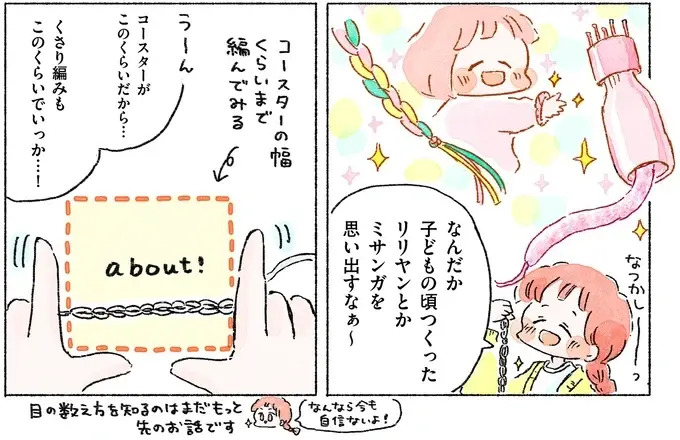 なんだか
子どもの頃つくった
リリヤンとか
ミサンガを
思い出すなぁ〜
なつかしーっ
コースターの幅
くらいまで
編んでみる
う〜ん
コースターが
このくらいだから…
くさり編みも
このくらいでいっか…!
about!
目の数え方を知るのはまだもっと
先のお話です
なんなら今も
自信ないよ!